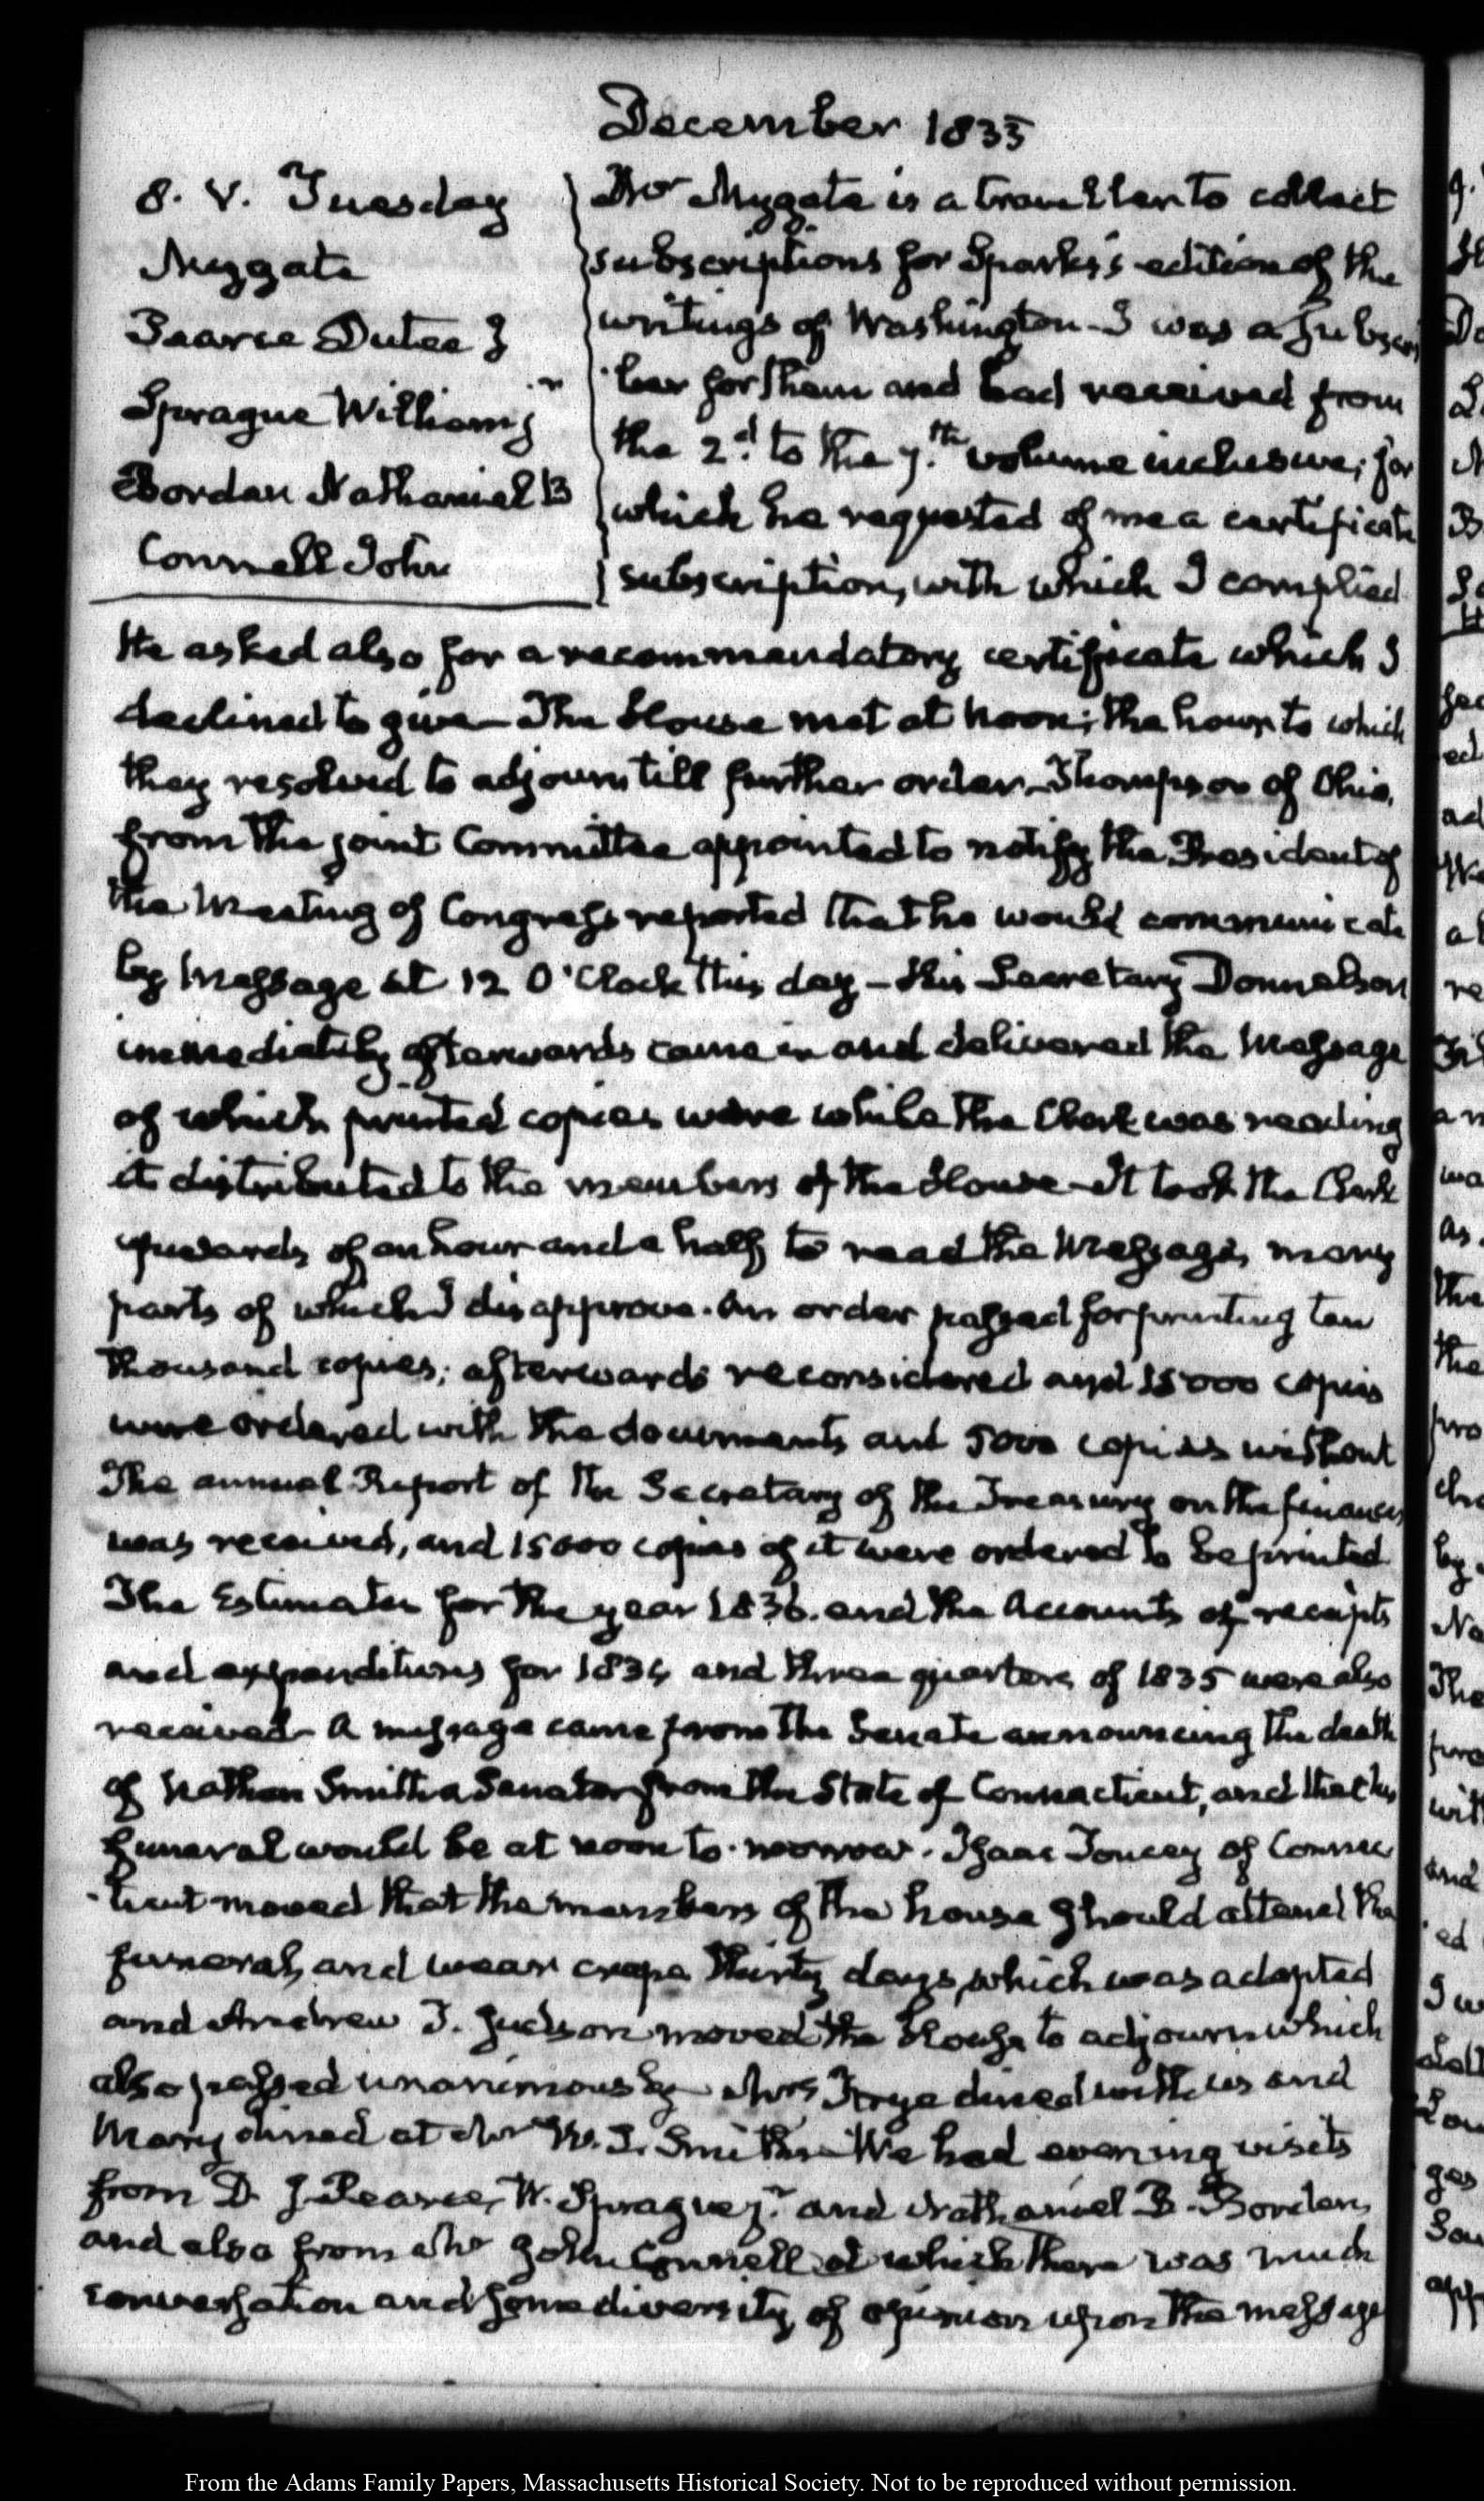 December 1835
8. V. Tuesday
Mygate
Pearce Dutee J
Sprague William jr
Borden Nathaniel B
Connell John
Mr Mygate is a traveller to collect
subscriptions for Sparks's edition of the
writings of Washington – I was a subscri
ber for them and had received from
the 2d. to the 7.th volume inclusive; for
which he requested of me a certificate
subscription, with which I complied
He asked also for a recommendatory certificate which I
declined to give – The House met at Noon; the hour to which
they resolved to adjourn till further order – Thompson of Ohio,
from the joint Committee appointed to notify the President of
the Meeting of Congress reported that he would communicate
by Message at 12 O'Clock this day – His Secretary Donnelson
immediately afterwards came in and delivered the Message
of which printed copies were while the Clerk was reading
it distributed to the members of the House – It took the Clerk
upwards of an hour and a half to read the Message, many
parts of which I disapprove. An order passed for printing ten
thousand copies; afterwards reconsidered and 15000 copies
were ordered with the documents and 5000 copies without
The annual Report of the Secretary of the Treasury on the finances
was received, and 15000 copies of it were ordered to be printed
The Estimates for the year 1836. and the Accounts of receipts
and expenditures for 1834 and three quarters of 1835 were also
received – A message came from the Senate announcing the death
of Nathan Smith a Senator from the State of Connecticut, and that his
funeral would be at noon to-morrow. Isaac Toucey of Connec
ticut moved that the members of the house should attend the
funeral, and wear crape thirty days, which was adopted
and Andrew T. Judson moved the House to adjourn which
also passed unanimously – Mrs Frye dined with us and
Mary dined at Mr W. L. Smith's – We had evening visits
from D. J. Pearce, W. Sprague jr. and Nathaniel B. Borden,
and also from Mr John Connell at which there was much
conversation and some diversity of opinion upon the message
From the Adams Family Papers, Massachusetts Historical Society. Not to be reproduced without permission.